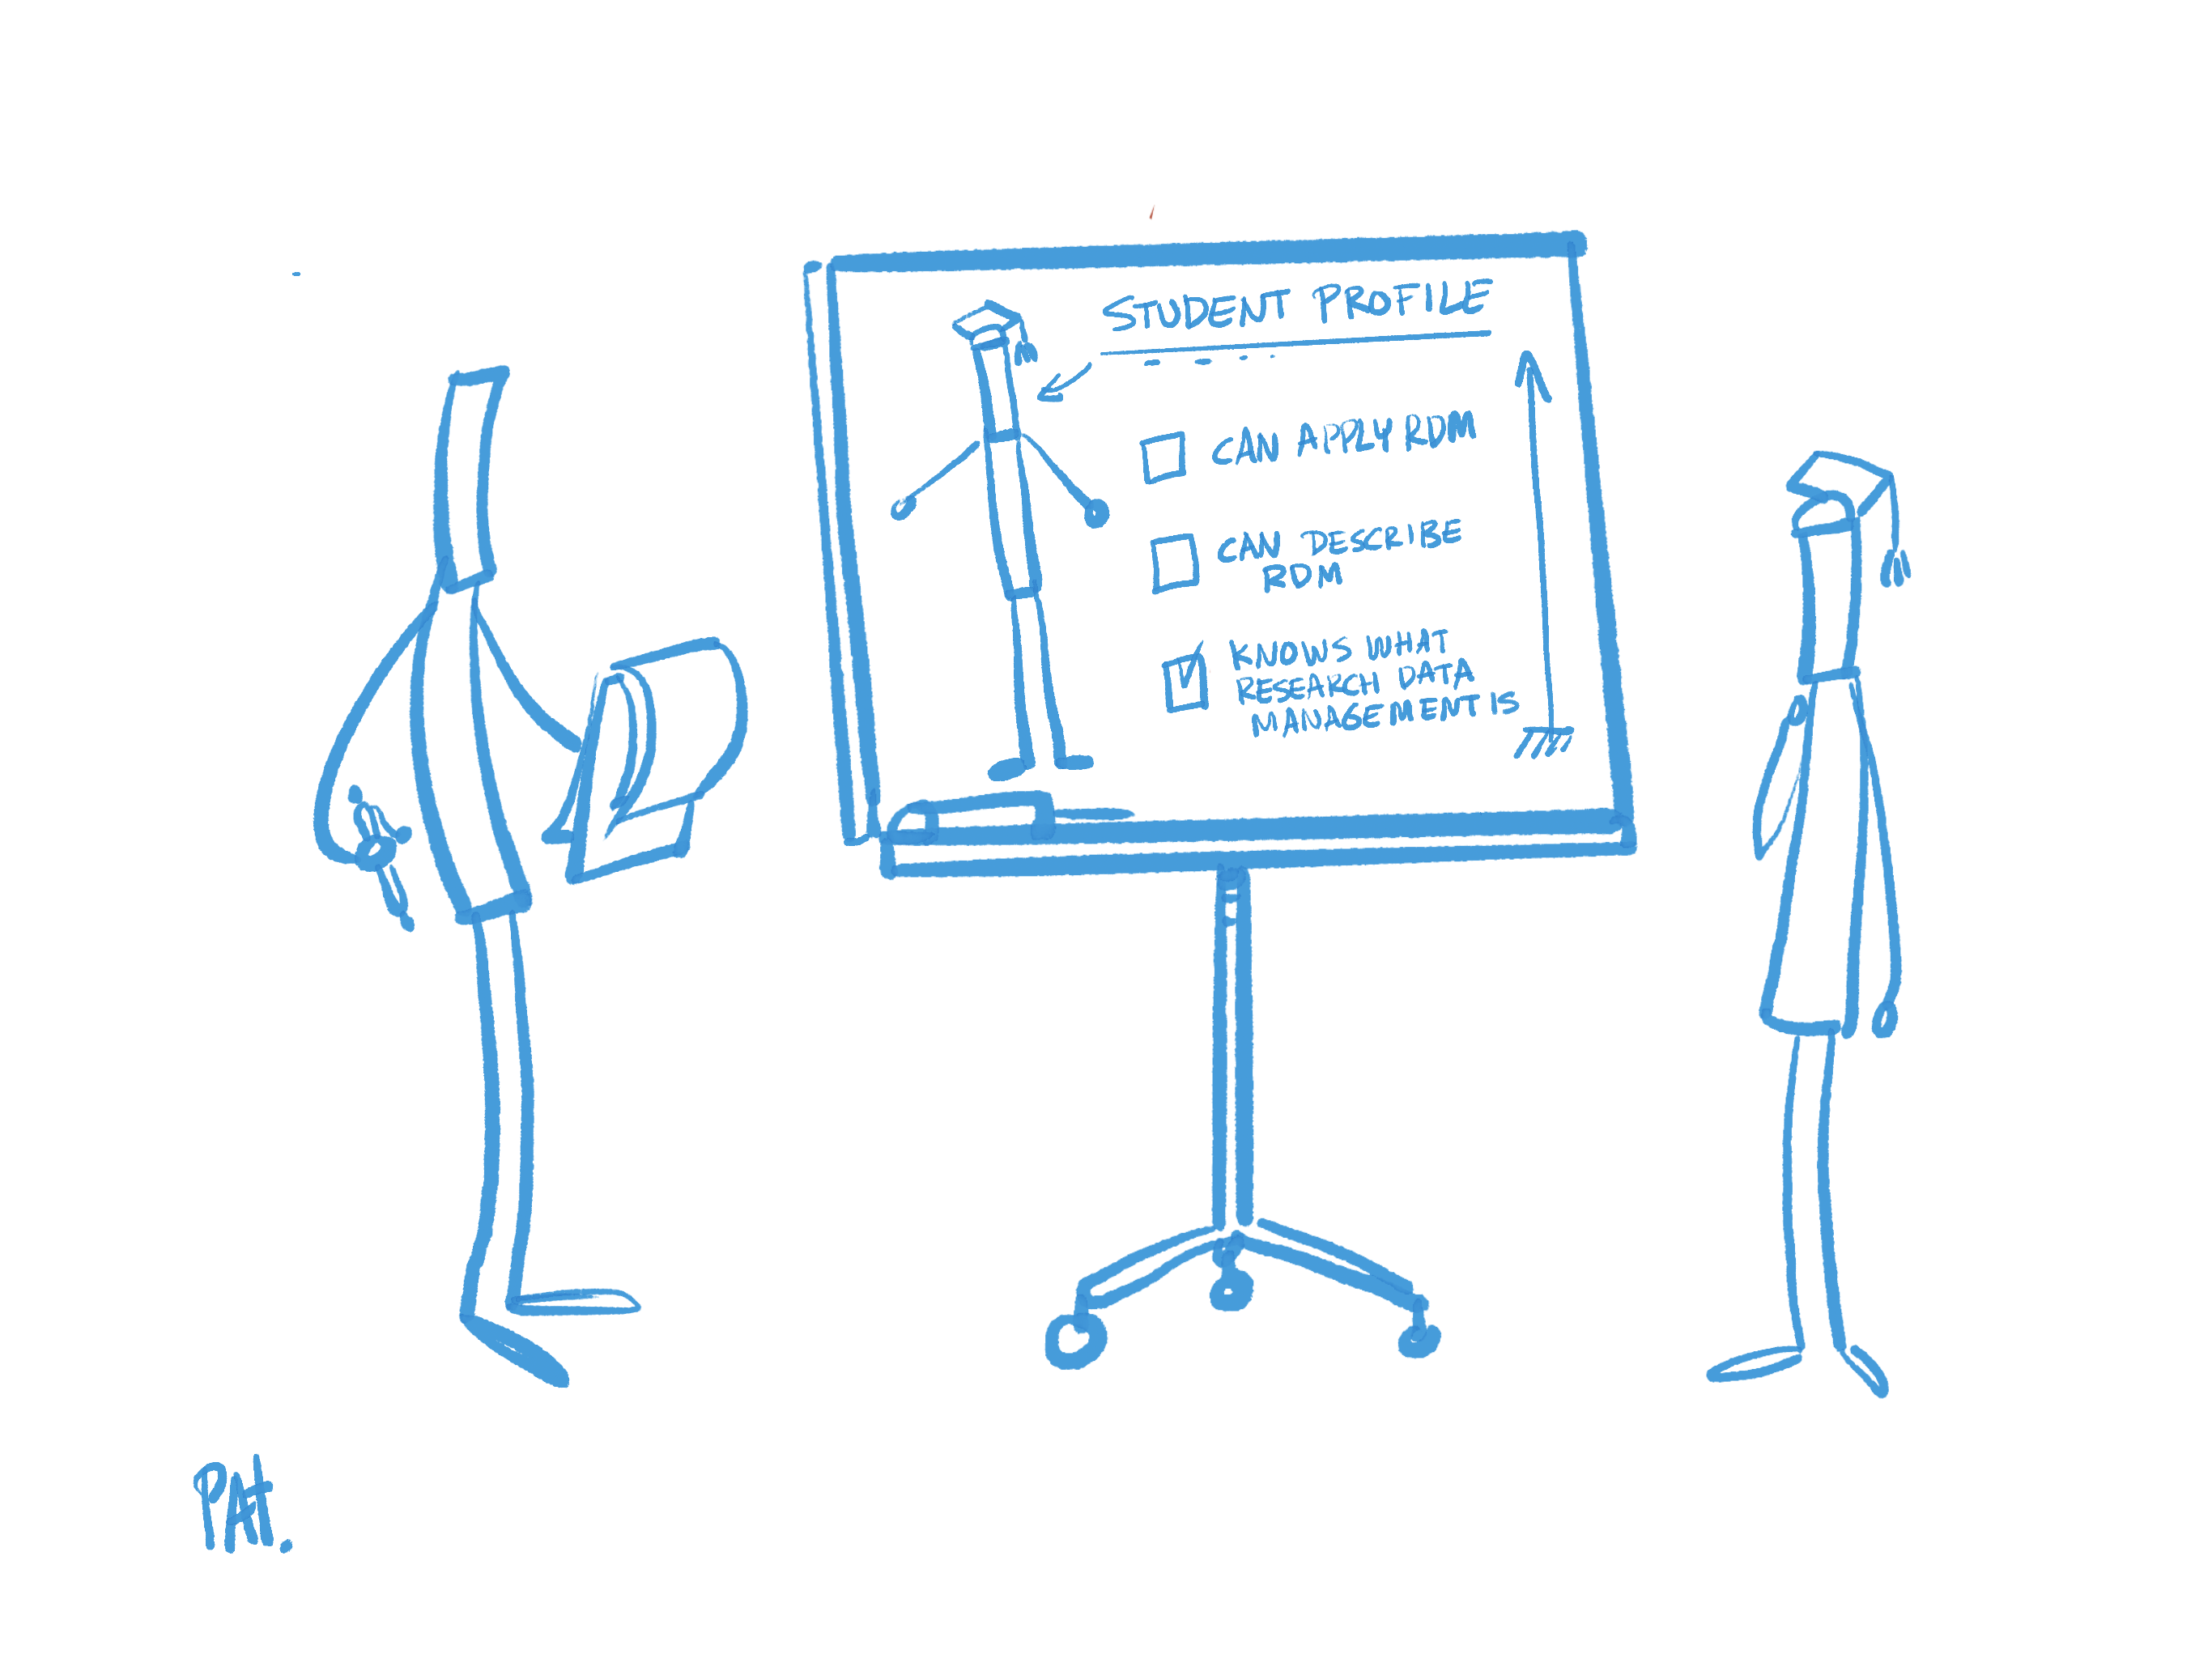 STUDENT PROFILE
CAN APPLY RDM
CAN DESCRIBE
RDM
KNOWS WHAT
RESEARCH DATA
MANAGEMENT IS
PAt.